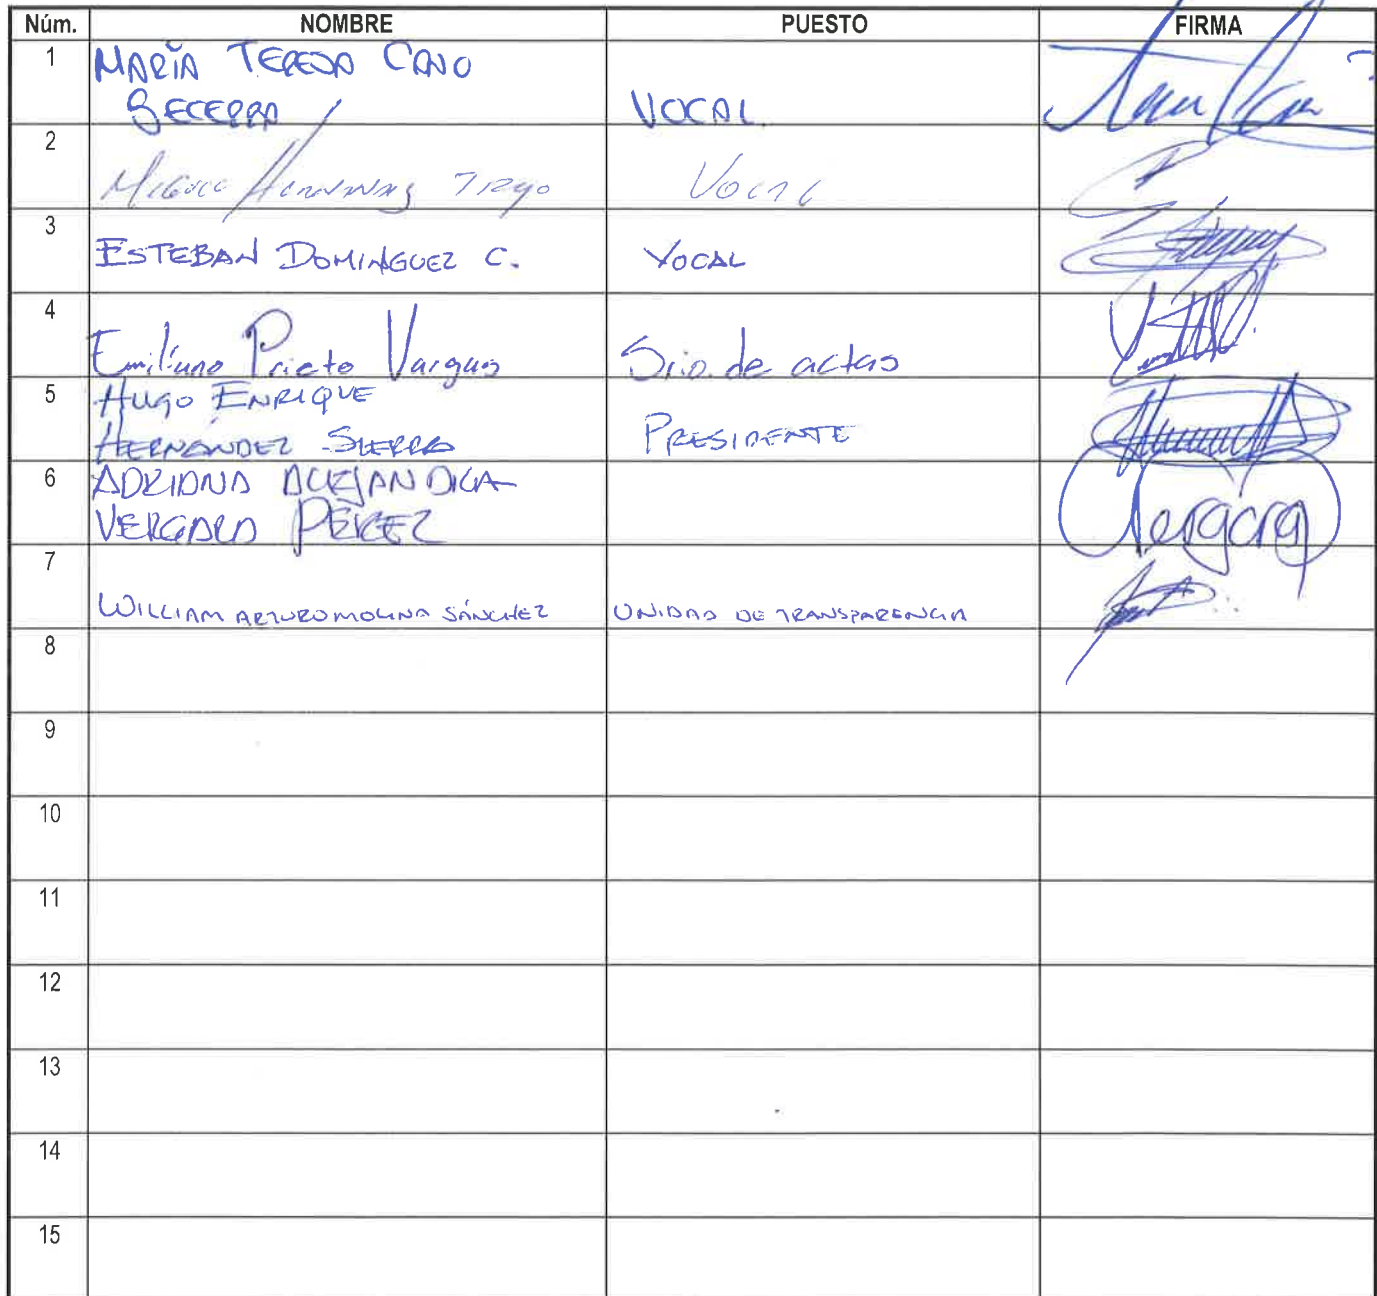 Núm. NOMBRE PUESTO FIRMA
1 MARÍA TERESA CANO
BECERRA VOCAL
2 Hernández Vocal
3 ESTEBAN DOMINGUEZ C. VOCAL
4 Emiliano Prieto Vargas Srio. de actas
5 HUGO ENRIQUE
HERNÁNDEZ SIERRA PRESIDENTE
6 ADRIANA ALEJANDRA
VERGARA PÉREZ Vergara
7
WILLIAM ARTURO MOLINA SÁNCHEZ UNIDAD DE TRANSPARENCIA
8
9
10
11
12
13
14
15